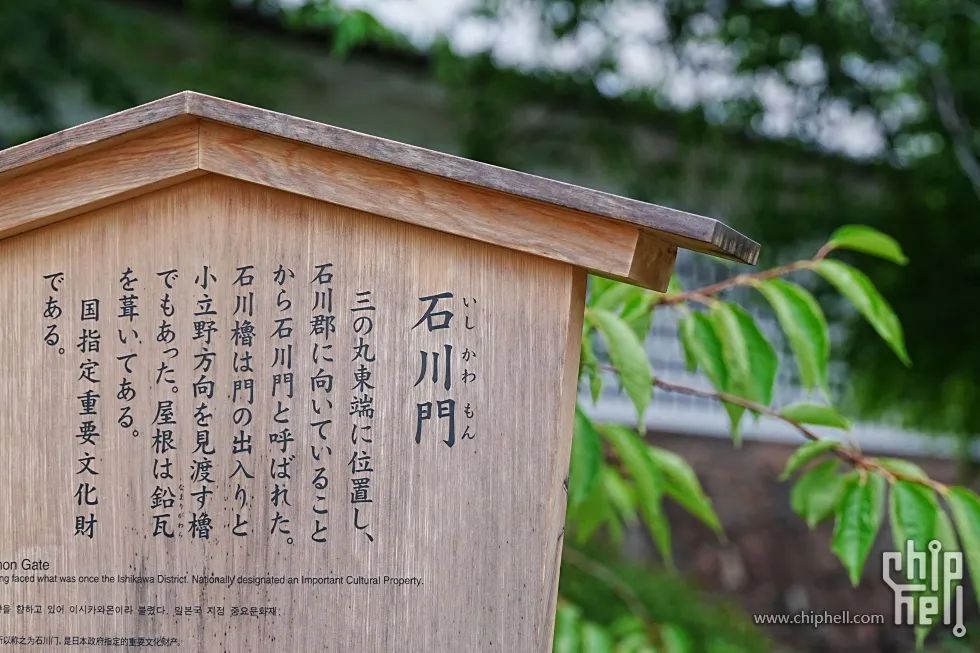 石川門
いしかわもん
三の丸東端に位置し、
石川郡に向いていること
から石川門と呼ばれた。
石川櫓は門の出入りと
小立野方向を見渡す櫓
でもあった。屋根は鉛瓦
なまりがわら
を葺いてある。
国指定重要文化財
である。
mon Gate
ng faced what was once the Ishikawa District. Nationally designated an Important Cultural Property.
을 향하고 있어 이시카와몬이라 불렸다. 일본국 지정 중요문화재.
所以称之为石川门, 是日本政府指定的重要文化财产。
www.chiphell.com
chip hell